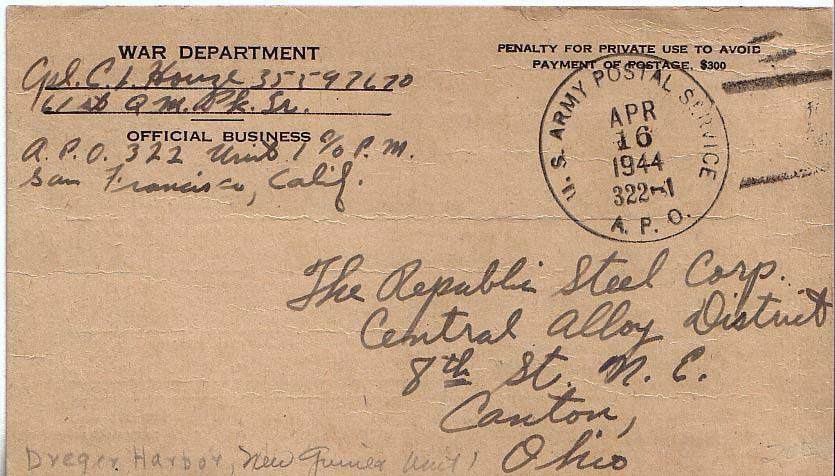 WAR DEPARTMENT
Cpl. C. L. Houze 35597670
61st Q M. Pk. Sr.
OFFICIAL BUSINESS
A.P.O. 322 Unit 1 % P.M.
San Francisco, Calif.
PENALTY FOR PRIVATE USE TO AVOID
PAYMENT OF POSTAGE, $300
U. S. ARMY POSTAL SERVICE
APR
16
1944
322-1
A. P. O.
The Republic Steel Corp.
Central Alloy District
8th St. N. E.
Canton,
Ohio
Dreger Harbor, New Guinea Unit 1